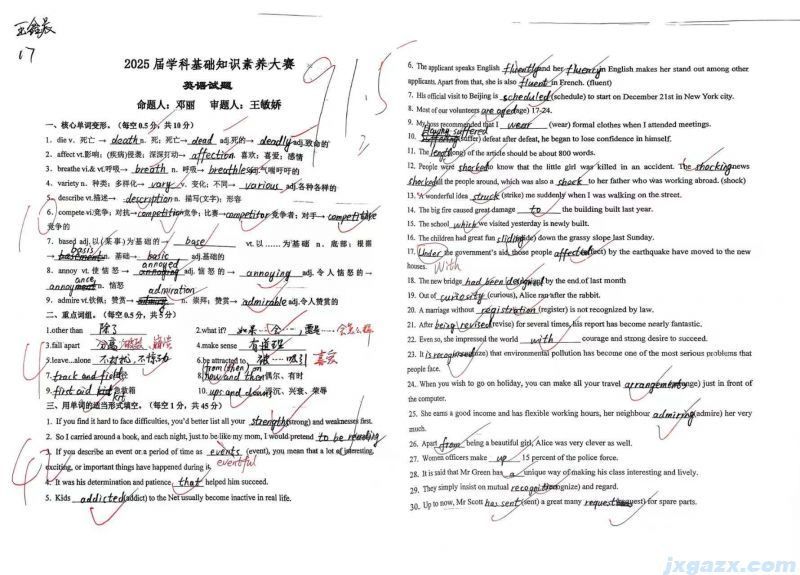 王鑫晨
17
91.5
2025 届学科基础知识素养大赛
英语试题
命题人：邓丽 审题人：王敏娇
一、核心单词变形。（每空0.5分，共10分）
1. die v. 死亡 → death n. 死；死亡→ dead adj.死的→ deadly adj.致命的
2. affect vt.影响；(疾病)侵袭；深深打动→ affection n. 喜欢；喜爱；感情
3. breathe vi.& vt.呼吸→ breath n. 呼吸→ breathless adj.气喘吁吁的
4. variety n. 种类；多样化→ vary v. 变化；不同→ various adj.各种各样的
5. describe vt.描述→ description n. 描写(文字)；形容
6. compete vi.竞争；对抗→ competition 竞争；比赛→ competitor 竞争者；对手→ competitive
竞争的
7. based adj.以(某事)为基础的→ base vt. 以……为基础 n. 底部；根据
→ basis n. 基础→ basic adj.基础的
8. annoy vt.使恼怒→ annoyed adj. 恼怒的→ annoying adj.令人恼怒的→
annoyance n. 恼怒
9. admire vt.钦佩；赞赏→ admiration n. 崇拜；赞赏→ admirable adj.令人赞赏的
10
二、重点词组。（每空0.5分，共5分）
1.other than 除了 2.what if? 如果…会…，要是… 会怎么样
3.fall apart 破裂 崩溃 4.make sense 有道理
5.leave...alone 不打扰，不惊动 6.be attracted to 被…吸引 喜欢
7. track and field 田径 8. from (then) on now and then 偶尔、有时
9. first aid kit 急救箱 10. ups and downs 浮沉、兴衰、荣辱
4
三、用单词的适当形式填空。（每空1分，共45分）
1. If you find it hard to face difficulties, you'd better list all your strengths (strong) and weaknesses first.
2. So I carried around a book, and each night, just to be like my mom, I would pretend to be reading
3. If you describe an event or a period of time as events (event), you mean that a lot of interesting,
exciting, or important things have happened during it. eventful
4. It was his determination and patience that helped him succeed.
5. Kids addicted (addict) to the Net usually become inactive in real life.
42
6. The applicant speaks English fluently and her fluency in English makes her stand out among other
applicants. Apart from that, she is also fluent in French. (fluent)
7. His official visit to Beijing is scheduled (schedule) to start on December 21st in New York city.
8. Most of our volunteers are aged (age) 17-24.
9. My boss recommended that I wear (wear) formal clothes when I attended meetings.
10. Having suffered (suffer) defeat after defeat, he began to lose confidence in himself.
11. The length (long) of the article should be about 800 words.
12. People were shocked to know that the little girl was killed in an accident. The shocking news
shocked all the people around, which was also a shock to her father who was working abroad. (shock)
13. A wonderful idea struck (strike) me suddenly when I was walking on the street.
14. The big fire caused great damage to the building built last year.
15. The school which we visited yesterday is newly built.
16. The children had great fun sliding (slide) down the grassy slope last Sunday.
17. Under the government's aid, those people affected (affect) by the earthquake have moved to the new
houses. With
18. The new bridge had been designed by the end of last month
19. Out of curiosity (curious), Alice ran after the rabbit.
20. A marriage without registration (register) is not recognized by law.
21. After being revised (revise) for several times, his report has become nearly fantastic.
22. Even so, she impressed the world with courage and strong desire to succeed.
23. It is recognized that environmental pollution has become one of the most serious problems that
people face.
24. When you wish to go on holiday, you can make all your travel arrangements just in front of
the computer.
25. She earns a good income and has flexible working hours, her neighbour admiring (admire) her very
much.
26. Apart from being a beautiful girl, Alice was very clever as well.
27. Women officers make up 15 percent of the police force.
28. It is said that Mr Green has a unique way of making his class interesting and lively.
29. They simply insist on mutual recognition (recognize) and regard.
30. Up to now, Mr Scott has sent (sent) a great many requests (request) for spare parts.
jxgazx.com